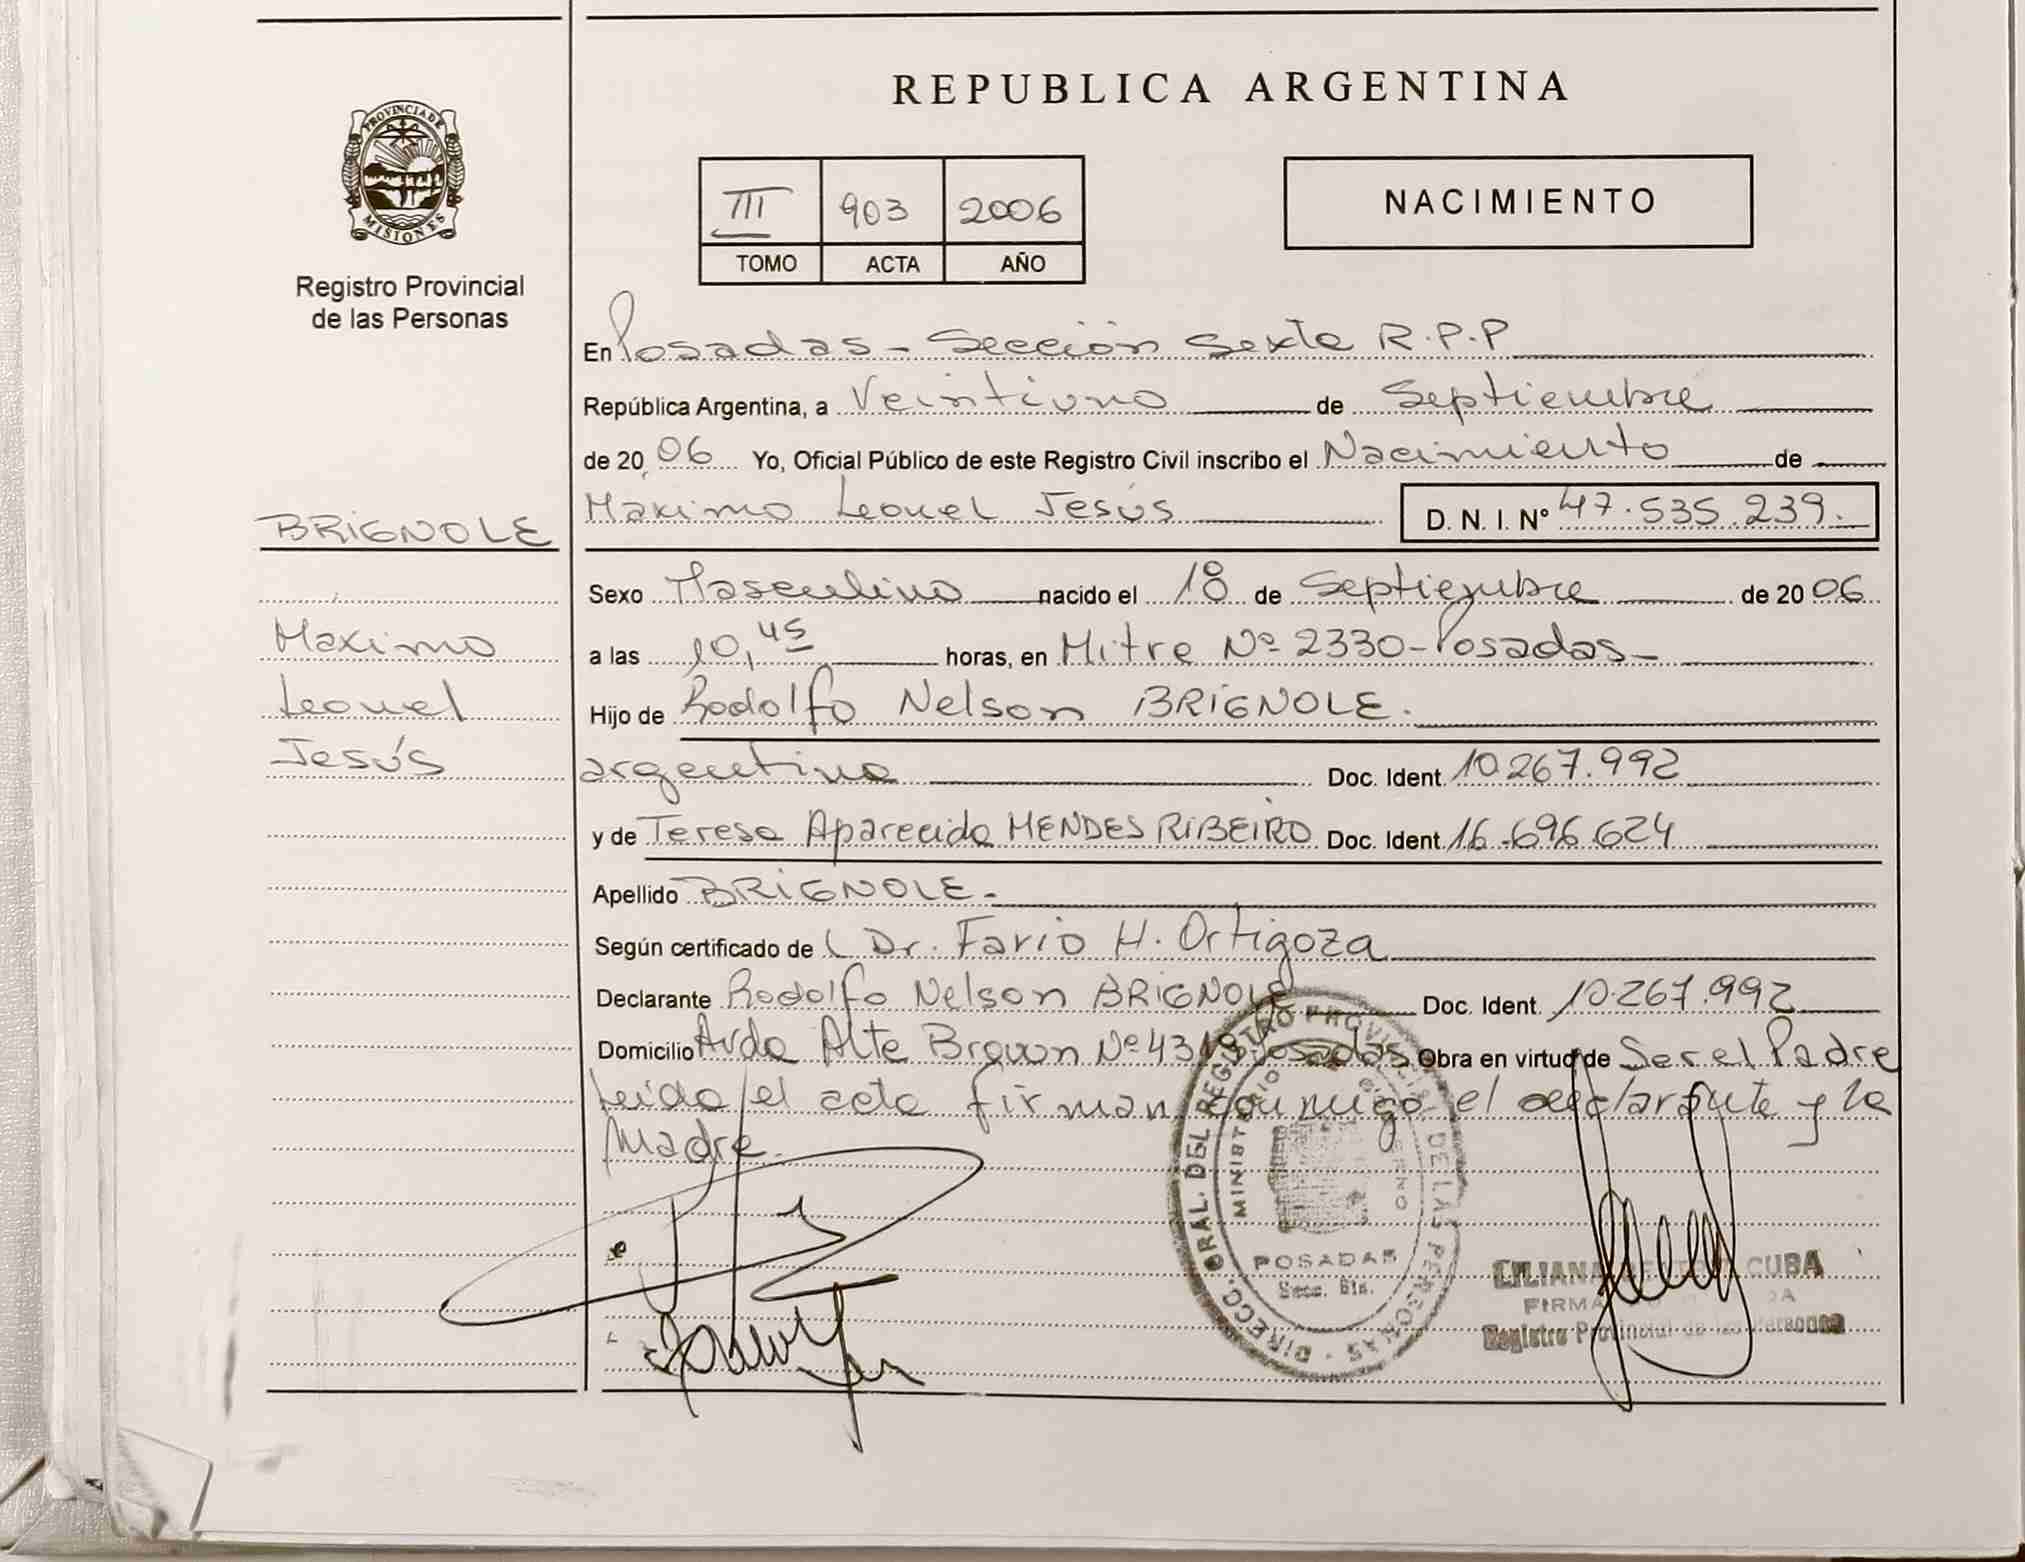 REPUBLICA ARGENTINA
PROVINCIA DE
MISIONES
Registro Provincial
de las Personas
III 903 2006
TOMO ACTA AÑO
NACIMIENTO
En Posadas - Sección Sexta R.P.P
República Argentina, a Veintiuno de Septiembre
de 2006 Yo, Oficial Público de este Registro Civil inscribo el Nacimiento de
Máximo Leonel Jesús D. N. I. N° 47.535.239.
BRIGNOLE
Maximo
Leonel
Jesús
Sexo Masculino nacido el 18 de Septiembre de 2006
a las 10,45 horas, en Mitre Nº 2330 - Posadas -
Hijo de Rodolfo Nelson BRIGNOLE.
argentino Doc. Ident. 10.267.992
y de Teresa Aparecida MENDES RIBEIRO Doc. Ident. 16.696.624
Apellido BRIGNOLE -
Según certificado de Dr. Favio H. Ortigoza
Declarante Rodolfo Nelson BRIGNOLE Doc. Ident. 10.267.992
Domicilio Avda Alte Brown Nº 4319 Posadas Obra en virtud de Ser el Padre
Leída el acta firman conmigo el declarante y la
Madre.
DIRECC. GRAL. DEL REGISTRO PROVINCIAL DE LAS PERSONAS
MINISTERIO GOBIERNO
POSADAS
Secc. 6ta.
LILIANA CUBA
FIRMA
Registro Provincial de las Personas